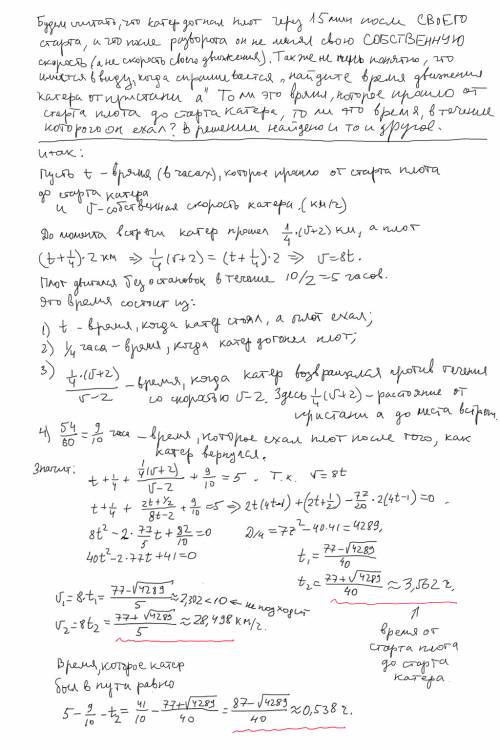 Будем считать, что катер догнал плот через 15 мин после СВОЕГО
старта, и что после разворота он не менял свою СОБСТВЕННУЮ
скорость (а не скорость своего движения). Также не очень понятно, что
имеется в виду, когда спрашивается „найдите время движения
катера от пристани а" То ли это время, которое прошло от
старта плота до старта катера, то ли это время, в течение
которого он ехал? В решении найдено и то и другое.
Итак:
Пусть t – время (в часах), которое прошло от старта плота
до старта катера
и v – собственная скорость катера. (км/ч)
До момента встречи катер прошел 1/4·(v+2) км, а плот
(t+1/4)·2 км ⇒ 1/4(v+2) = (t+1/4)·2 ⇒ v=8t.
Плот двигался без остановок в течение 10/2=5 часов.
Это время состоит из:
1) t – время, когда катер стоял, а плот ехал;
2) 1/4 часа – время, когда катер догонял плот;
3) (1/4·(v+2))/(v-2) – время, когда катер возвращался против течения
со скоростью v-2. Здесь 1/4(v+2) – расстояние от
пристани а до места встречи.
4) 54/60 = 9/10 часа – время, которое ехал плот после того, как
катер вернулся.
Значит: t + 1/4 + (1/4(v+2))/(v-2) + 9/10 = 5. Т.к. v=8t
t + 1/4 + (2t+1/2)/(8t-2) + 9/10 = 5 ⇒ 2t(4t-1)+(2t+1/2) - 77/20·2(4t-1)=0.
8t²-2·77/5 t + 82/10 = 0
D/4 = 77²-40·41 = 4289,
40t²-2·77t+41=0
t₁ = (77-√4289)/40
t₂ = (77+√4289)/40 ≈ 3,562 ч.
v₁=8·t₁ = (77-√4289)/5 ≈ 2,302 < 10 ← не подходит
v₂=8t₂ = (77+√4289)/5 ≈ 28,498 км/ч.
время от
старта плота
до старта
катера.
Время, которое катер
был в пути равно
5 - 9/10 - t₂ = 41/10 - (77+√4289)/40 = (87-√4289)/40 ≈ 0,538 ч.